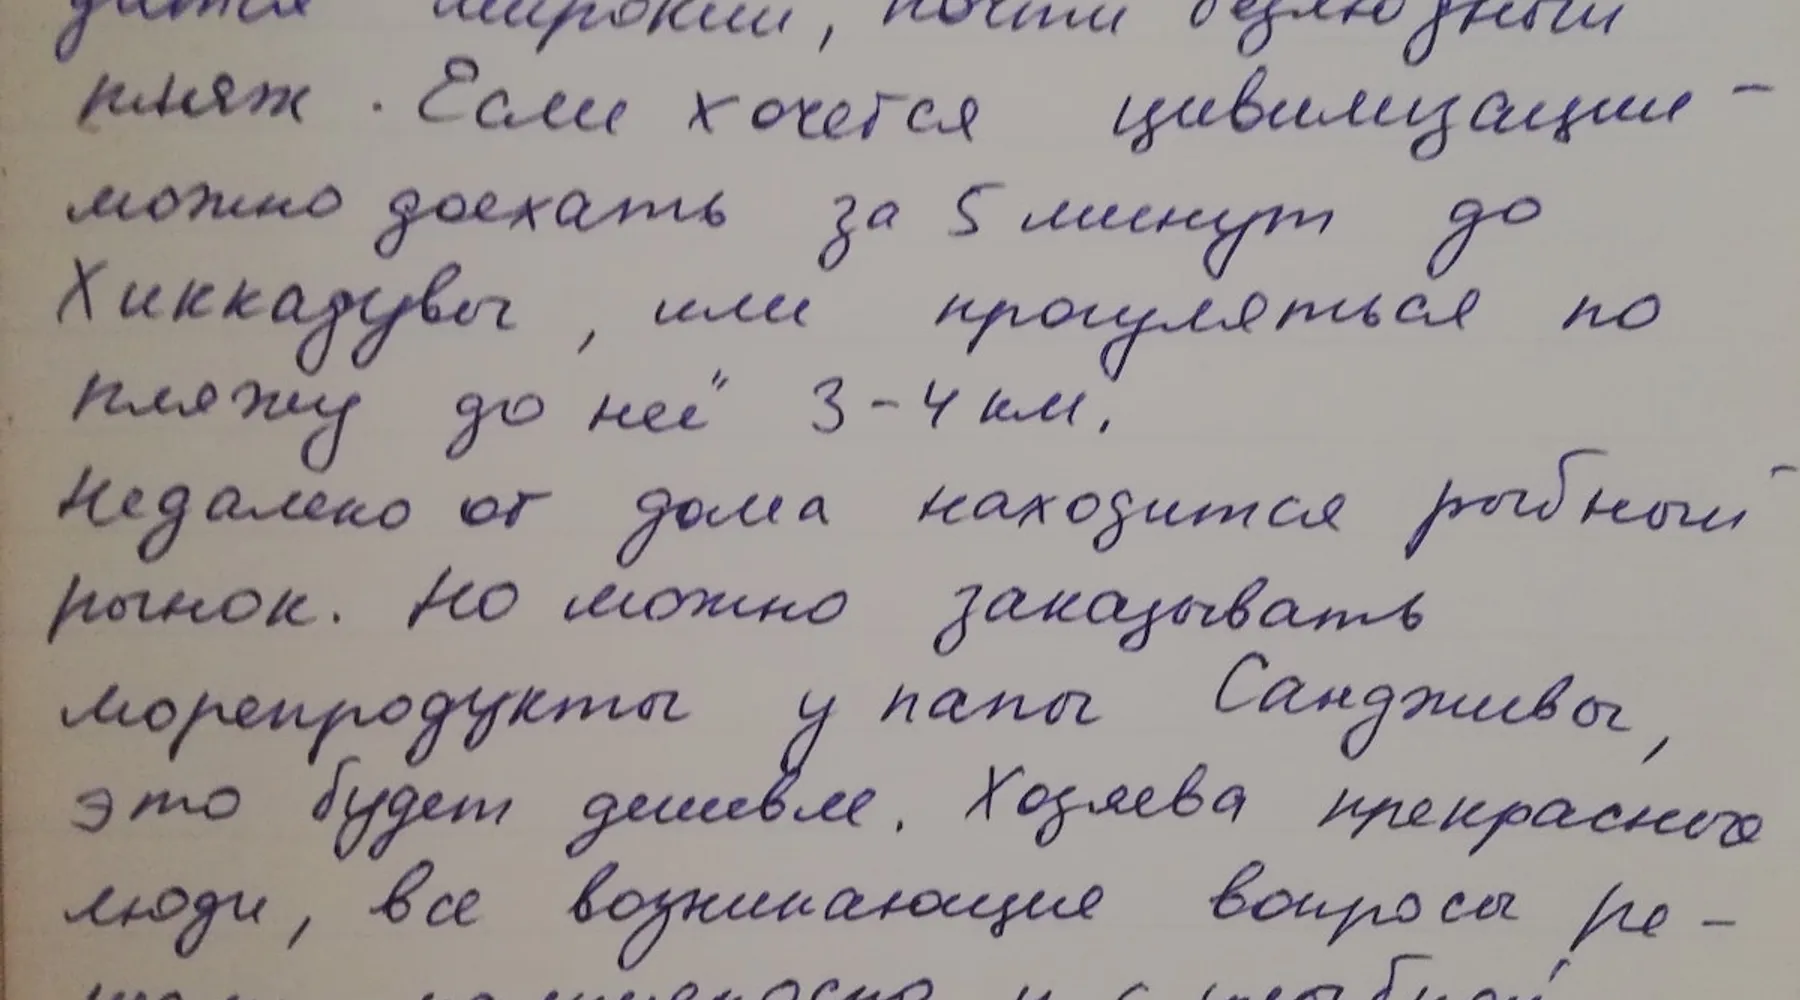 дится широкий, почти безлюдный
пляж. Если хочется цивилизации -
можно доехать за 5 минут до
Хиккадувы, или прогуляться по
пляжу до неё 3-4 км.
Недалеко от дома находится рыбный
рынок. Но можно заказывать
морепродукты у папы Сандживы,
это будет дешевле. Хозяева прекрасные
люди, все возникающие вопросы ре-
и с улыбкой